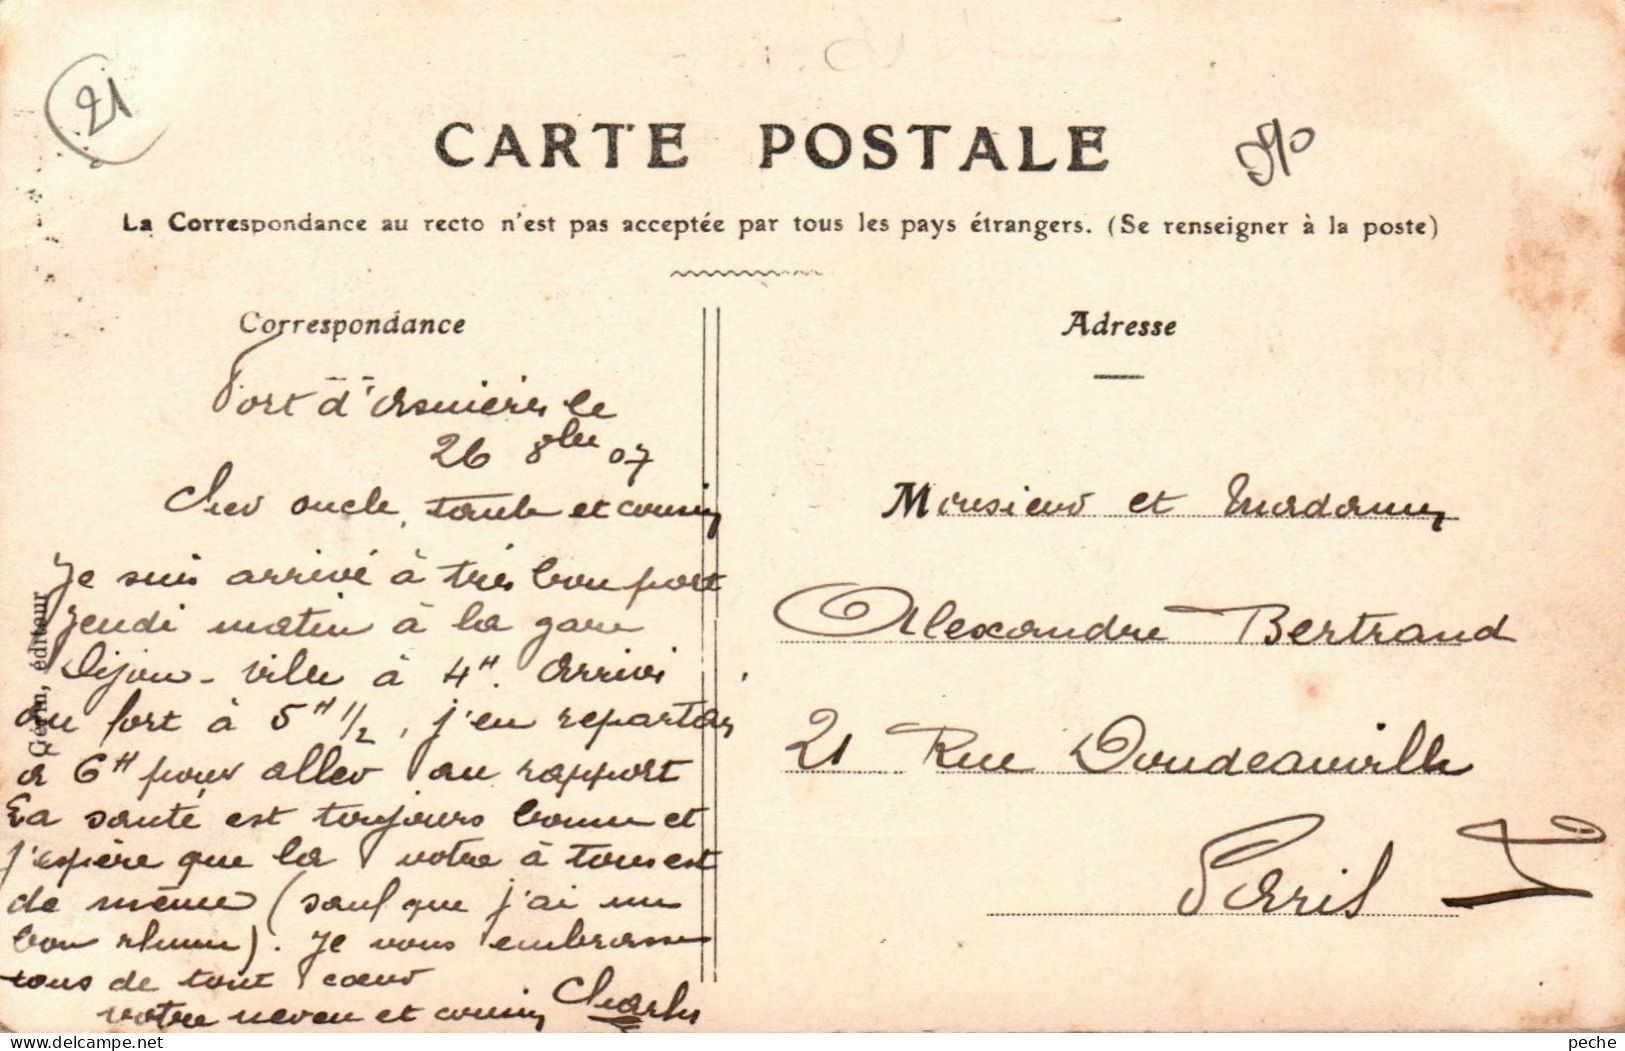 21
CARTE POSTALE
La Correspondance au recto n'est pas acceptée par tous les pays étrangers. (Se renseigner à la poste)
Correspondance
Fort d'Asnières le
26 8bre 07
Cher oncle, tante et cousin
Je suis arrivé à très bon port
jeudi matin à la gare
Dijon-ville à 4H. Arrivé
au fort à 5H 1/2, j'en repartais
à 6H pour aller au rapport
La santé est toujours bonne et
j'espère que la votre à tous est
de même (sauf que j'ai un
bon rhume). Je vous embrasse
tous de tout cœur
votre neveu et cousin Charles
Gérin, éditeur
Adresse
Monsieur et Madame
Alexandre Bertrand
21 Rue Doudeauville
Paris
peche